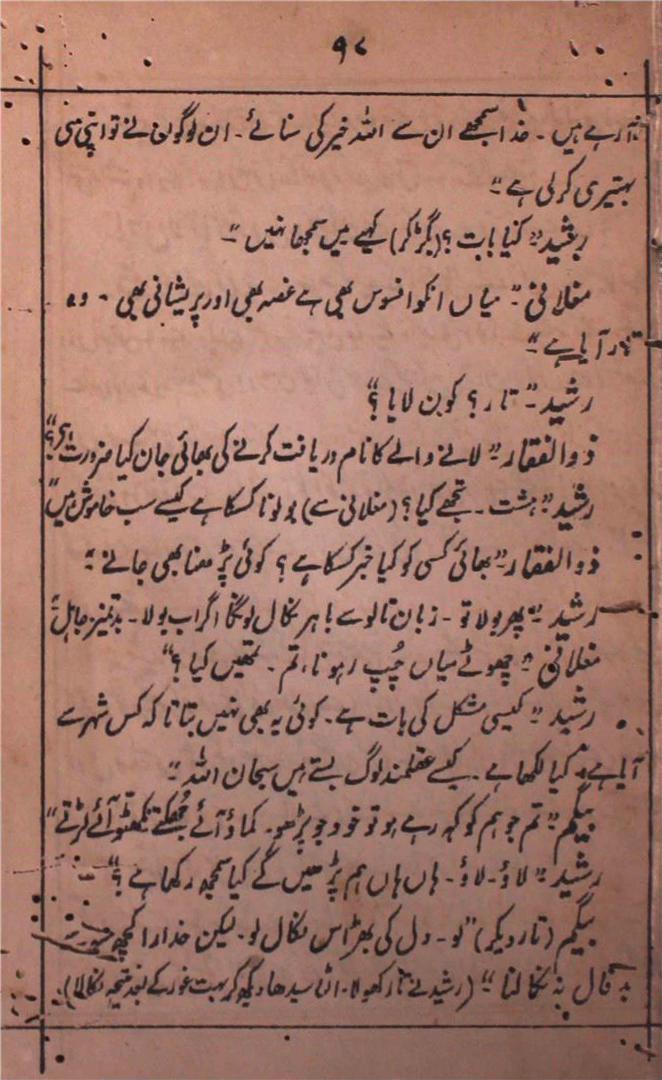 ۹۷
آرہے ہیں ۔ خدا سمجھے ان سے اللہ خیر کی سنائے ۔ ان لوگوں نے تو اپنی سی
بہتیری کرلی ہے “
رشید ” کیا بات ؟ (بگڑ کر) کہیے میں سمجھا نہیں “۔
مغلانی ” میاں انکو افسوس بھی ہے غصہ بھی اور پریشانی بھی ۔ وہ
تار آیا ہے “
رشید ” تار ؟ کون لایا ؟ “
ذوالفقار ” لانے والے کا نام دریافت کرنے کی بھائی جان کیا ضرورت ہے ؟ “
رشید ” ہشت ۔ تجھے کیا ؟ (مغلانی سے) بولو نا کسکا ہے کیسے سب خاموش ہیں “
ذوالفقار ” بھائی کسی کو کیا خبر کسکا ہے ؟ کوئی پڑھنا بھی جانے “
رشید ” پھر بولا تو ۔ زبان تالو سے باہر نکال لونگا اگر اب بولا ۔ بدتمیز جاہل “
مغلانی ” چھوٹے میاں چُپ رہو نا، تم ۔ تمھیں کیا ؟ “
رشید ” کیسی مشکل کی بات ہے ۔ کوئی یہ بھی نہیں بتاتا کہ کس شہر سے
آیا ہے، کیا لکھا ہے ۔ کیسے عقلمند لوگ بستے ہیں سبحان اللہ “
بیگم ” تم جو ہم کو کہہ رہے ہو تو خود جو پڑھو ۔ کماؤ آئے جُھکتے نکھٹو آئے لڑتے “
رشید ” لاؤ ۔ لاؤ ۔ ہاں ہاں ہم پڑھیں گے کیا سمجھ رکھا ہے ؟ “
بیگم (تار دیکر) ” لو ۔ دل کی بھڑاس نکال لو ۔ لیکن خدارا کچھ
بد فال نہ نکالنا “ (رشید نے تار کھولا ۔ الٹا سیدھا دیکھ کر بہت غور کے بعد نتیجہ نکالا) ۔